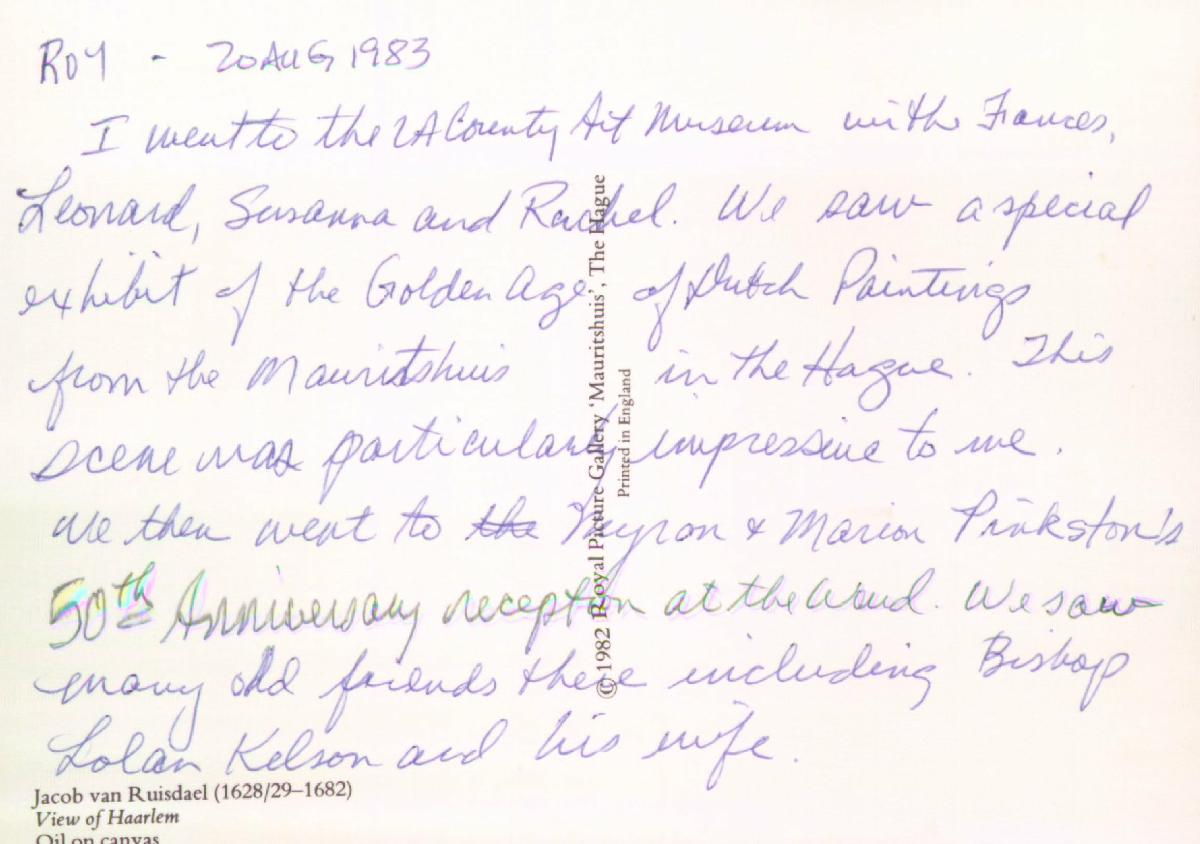 ROY - 20 AUG 1983
I went to the LA County Art Museum with Frances,
Leonard, Susanna and Rachel. We saw a special
exhibit of the Golden Age of Dutch Paintings
from the Mauritshuis in the Hague. This
scene was particularly impressive to me.
We then went to the Myron & Marion Pinkston's
50th Anniversary reception at the Ward. We saw
many old friends there including Bishop
Lolan Kelson and his wife.
© 1982 Royal Picture Gallery 'Mauritshuis', The Hague
Printed in England
Jacob van Ruisdael (1628/29–1682)
View of Haarlem
Oil on canvas